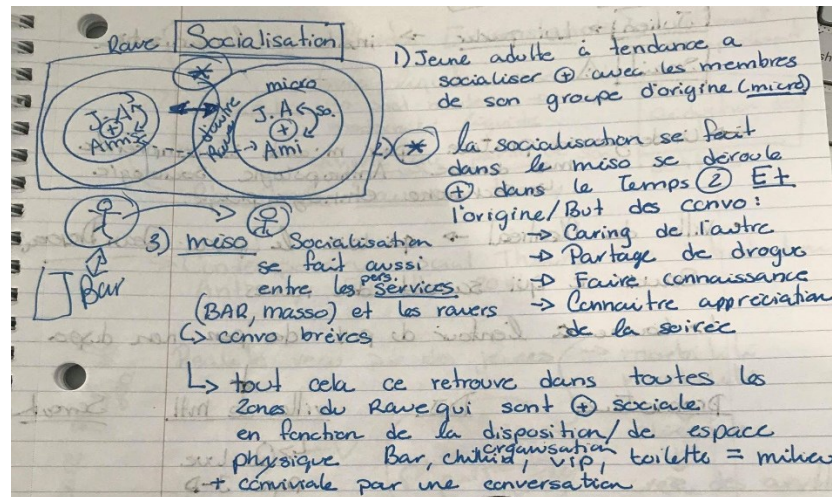 Rave Socialisation
*
micro
J.A
+
Ami
J.A so.
+
Ami
Bar
1) Jeune adulte à tendance a
socialiser + avec les membres
de son groupe d'origine (micro)
2) * la socialisation se fait
dans le miso se déroule
+ dans le Temps 2 Et
l'origine/But des convo:
→ Caring de l'autre
→ Partage de drogue
→ Faire connaissance
→ Connaitre appréciation
de la soirée
3) miso Socialisation
se fait aussi
entre les pers. services
(BAR, masso) et les ravers
↳ convo brèves
↳ tout cela ce retrouve dans toutes les
zones du Rave qui sont + sociale
en fonction de la disposition/de espace
organisation
physique Bar, chillid, VIP, toilette = milieu
+ conviviale par une conversation